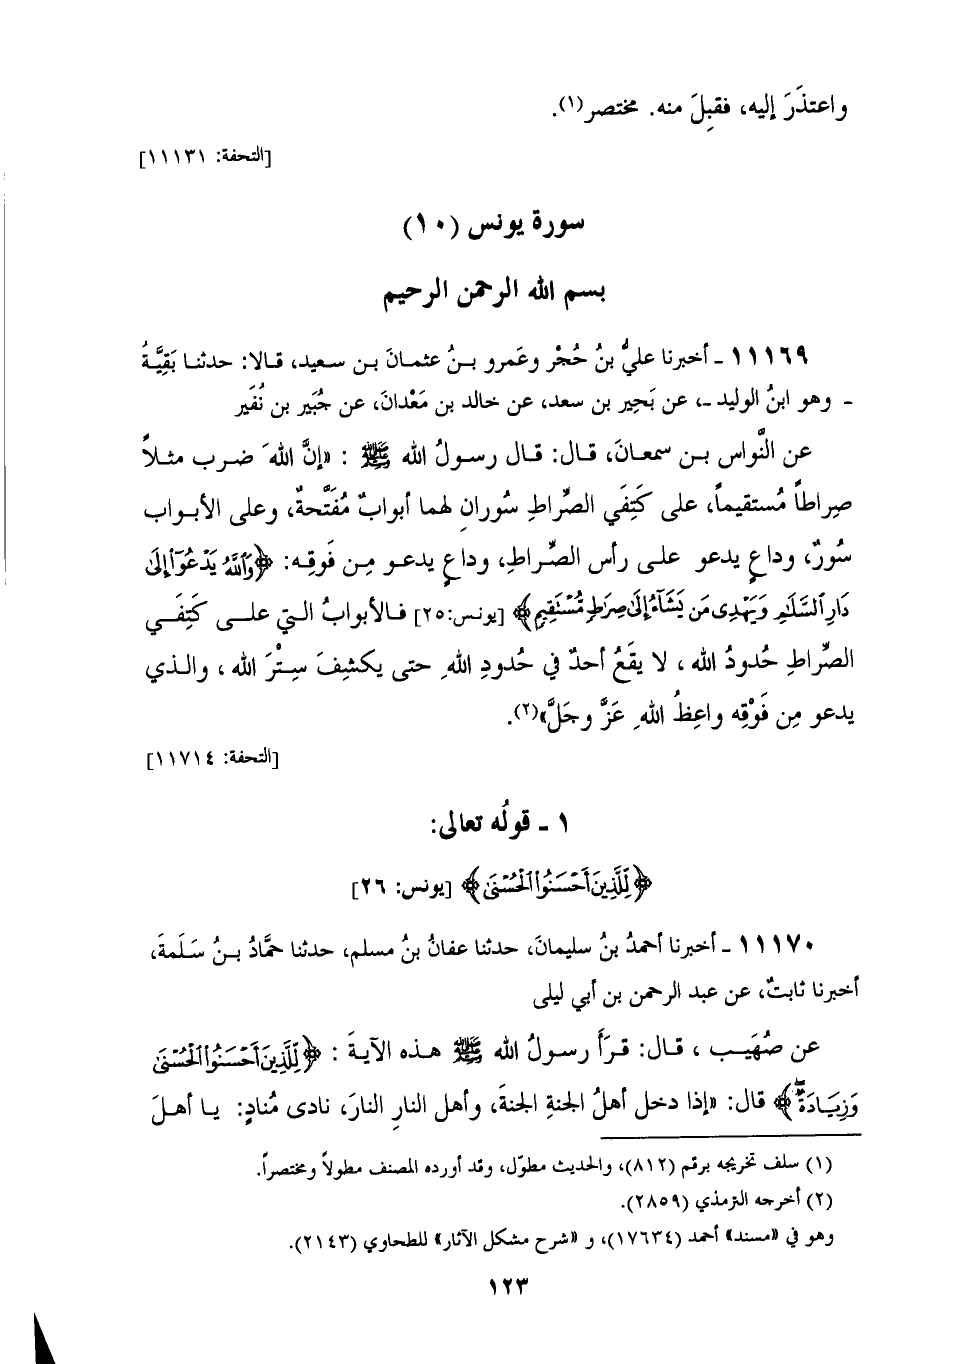 واعتذَرَ إليه، فقبِلَ منه. مختصر(١).
[التحفة: ١١١٣١]
سورة يونس (١٠)
بسم الله الرحمن الرحيم
١١١٦٩ ـ أخبرنا عليُّ بنُ حُجْر وعَمرو بـنُ عثمـانَ بـن سـعيد، قـالا: حدثنـا بَقِيَّـةُ
ـ وهو ابنُ الوليد ـ، عن بَحِير بن سعد، عن خالد بن مَعْدانَ، عن جُبَير بن نُفَير
عن النَّواس بـن سمعـانَ، قـال: قـال رسـولُ الله ﷺ : «إنَّ اللهَ ضـرب مثـلاً
صِراطاً مُستقيماً، على كَتِفَي الصِّراطِ سُورانِ لهما أبوابٌ مُفَتَّحةٌ، وعلى الأبـواب
سُورٌ، وداعٍ يدعو على رأس الصِّراطِ، وداعٍ يدعـو مِـن فَوقِـه: ﴿وَٱللَّهُ يَدْعُوٓا۟ إِلَىٰ
دَارِ ٱلسَّلَٰمِ وَيَهْدِى مَن يَشَآءُ إِلَىٰ صِرَٰطٍ مُّسْتَقِيمٍ﴾ [يونس:٢٥] فـالأبوابُ الـتي علـى كَتِفَـي
الصِّراطِ حُدودُ الله ، لا يقَعُ أحدٌ في حُدودِ اللهِ حتى يكشِفَ سِـتْرَ الله ، والـذي
يدعو مِن فَوْقِه واعِظُ اللهِ عَزَّ وجَلَّ»(٢).
[التحفة: ١١٧١٤]
١ ـ قولُه تعالى:
﴿لِّلَّذِينَ أَحْسَنُوا۟ ٱلْحُسْنَىٰ﴾ [يونس: ٢٦]
١١١٧٠ ـ أخبرنا أحمدُ بنُ سليمانَ، حدثنا عفانُ بنُ مسلم، حدثنا حمَّادُ بـنُ سَـلَمةَ،
أخبرنا ثابتٌ، عن عبد الرحمن بن أبي ليلى
عن صُهَيـب ، قـال: قـرَأَ رسـولُ الله ﷺ هـذه الآيـةَ : ﴿لِّلَّذِينَ أَحْسَنُوا۟ ٱلْحُسْنَىٰ
وَزِيَادَةٌ ۖ﴾ قال: «إذا دخل أهلُ الجنةِ الجنةَ، وأهل النارِ النارَ، نادى مُنادٍ: يـا أهـلَ
(١) سلف تخريجه برقم (٨١٢)، والحديث مطوّل، وقد أورده المصنف مطولاً ومختصراً.
(٢) أخرجه الترمذي (٢٨٥٩).
وهو في «مسند» أحمد (١٧٦٣٤)، و «شرح مشكل الآثار» للطحاوي (٢١٤٣).
١٢٣